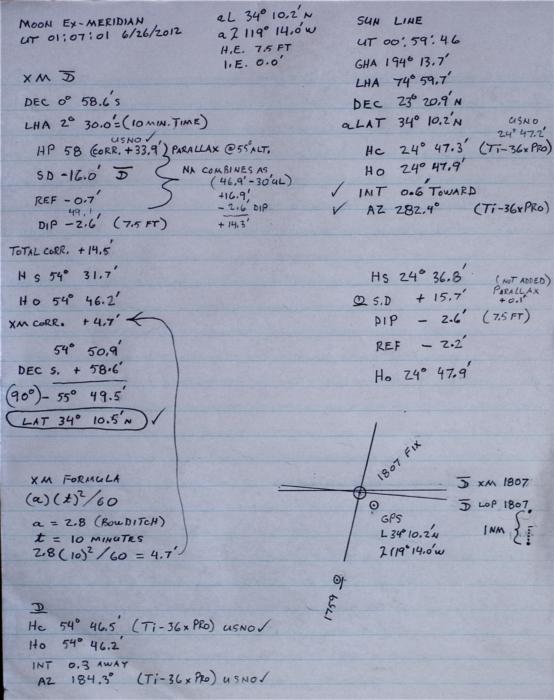 MOON EX-MERIDIAN
UT 01:07:01 6/26/2012
aL 34° 10.2' N
aλ 119° 14.0' W
H.E. 7.5 FT
I.E. 0.0'
XM
DEC 0° 58.6's
LHA 2° 30.0' = (10 MIN. TIME)
USNO ✓
HP 58 (CORR. +33.9') } PARALLAX @ 55° ALT.
SD -16.0'
REF -0.7'
49.1'
DIP -2.6' (7.5 FT)
NA COMBINES AS
(46.9' - 30' UL)
+16.9'
- 2.6 DIP
+ 14.3'
TOTAL CORR. +14.5'
Hs 54° 31.7'
Ho 54° 46.2'
XM CORR. + 4.7'
54° 50.9'
DEC S. + 58.6'
(90°) - 55° 49.5'
LAT 34° 10.5' N ✓
XM FORMULA
(a)(t)²/60
a = 2.8 (BOWDITCH)
t = 10 MINUTES
2.8(10)²/60 = 4.7'
Hc 54° 46.5' (Ti-36xPRO) USNO ✓
Ho 54° 46.2'
INT 0.3 AWAY
AZ 184.3° (Ti-36xPRO) USNO ✓
SUN LINE
UT 00:59:46
GHA 194° 13.7'
LHA 74° 59.7'
DEC 23° 20.9' N
aLAT 34° 10.2' N
USNO
24° 47.2'
Hc 24° 47.3' (Ti-36xPRO)
Ho 24° 47.9'
✓ INT 0.6' TOWARD
✓ AZ 282.4° (Ti-36xPRO)
Hs 24° 36.8'
(NOT ADDED)
PARALLAX
+0.1'
S.D + 15.7'
DIP - 2.6' (7.5 FT)
REF - 2.2'
Ho 24° 47.9'
1807 FIX
XM 1807
LOP 1807
GPS
L 34° 10.2' N
λ 119° 14.0' W
1 NM
1759